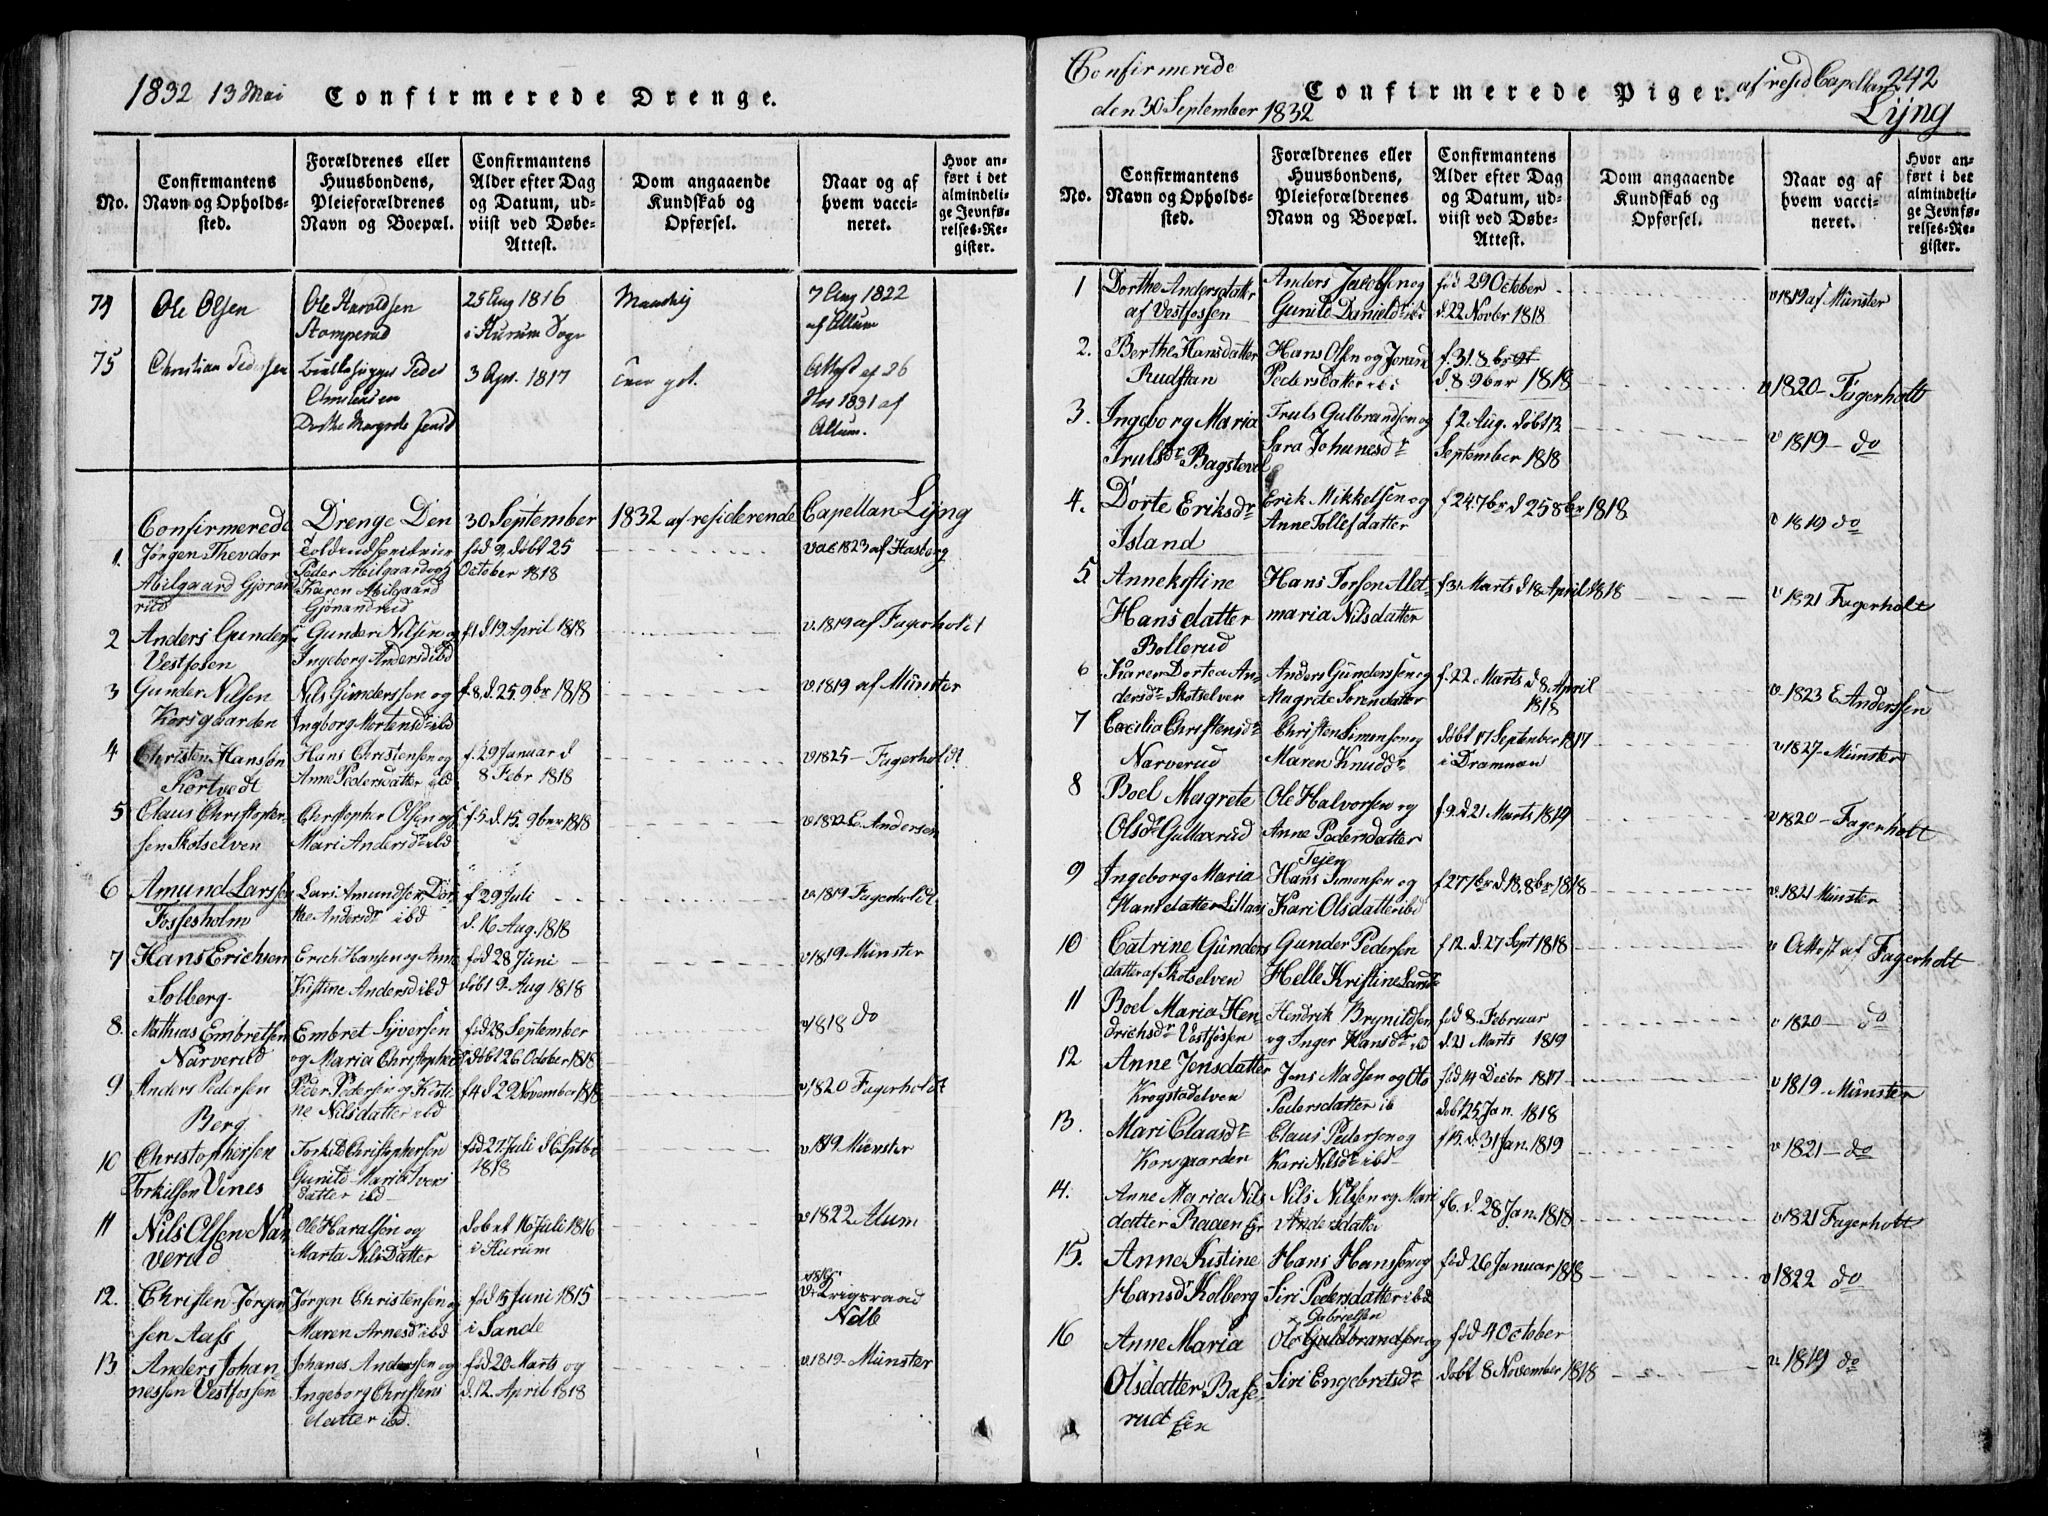 1832 13 Mai
Confirmerede Drenge.
No.
Confirmantens
Navn og Opholds-
sted.
Forældrenes eller
Huusbondens,
Pleieforældrenes
Navn og Boepæl.
Confirmantens
Alder efter Dag
og Datum, ud-
viist ved Døbe-
Attest.
Dom angaaende
Kundskab og
Opførsel.
Naar og af
hvem vacci-
neret.
Hvor an-
ført i det
almindeli-
ge Jevnfø-
relses-Re-
gister.
74
Ole Olsen
Ole Haroldsen
Stomperud
25 Aug 1816
i Hurum Sogn
7 Aug 1822
af Allum
75
Christian Pedersen
Peder
Christensen
Dorthe
3 Apr. 1817
Attest af 26
1831 af
Allum.
Confirmerede Drenge Den 30 September 1832 af residerende Capellan Lijng
1.
Jørgen Theodor
Abilgaard Gjoran
rud
Peder Abilgaard og
Karen Abilgaard
Gjønandrud
föd 9 döbt 25
October 1818
vac 1823 af Hasborg
2
Anders Gunders
Vestfosen
Gunder Nilsen og
Ingeborg Andersd ibd
f 1 d 19 April 1818
v. 1819 af Fagerholdt
3
Gunder Nilsen
Korsgaarden
Nils Gunderssen og
Ingborg Mortensdr ibd
f. 8. d. 25. 9br 1818
v. 1819 af Münster
4
Christen Hansøn
Kortvedt
Hans Christensen og
Anne Pedersdatter ibd
f. 29 Januar d
8 Febr 1818
v 1825 - Fagerholdt
5
Claus Christopher-
sen Skotselven
Christopher Olsen og
Mari Andersdr ibd
f. 5. d. 15. 9ber 1818
E. Andersen
6
Amund Larssen
Fossesholm
Lars Amundsen, Dor
the Andersdr ibd
f 29 Juli
d. 16 Aug. 1818
v. 1819 Fagerholdt
7
Hans Erichsen
Solberg.
Erich Hansen og Anne
Kistine Andersd ibd
föd 28 Juni
döbt 9. Aug 1818
v 1819 Münster
8.
Mathias Embretsen
Narverud
Embret Syversen
og Maria Christophd
föd 28 September
döbt 26 October 1818
v 1818 do
9
Anders Pedersen
Berg
Peder Pedersen og Kisti
ne Nilsdatter ibd
f 4 d 29 November 1818
v 1820 Fagerholdt
10
Christophersen
Torkilsen Vines
Torkild Christophersen
Gunild Maria Ivers
datter ibd
föd 27 Juli d 6 Sptbr
1818
v 1819 Münster
11
Nils Olsen Nar
verud
Ole Haralsen og
Marta Nilsdatter
döbt 16 Juli 1816
i Hurum
v 1822 Alum
12.
Christen Jørgen
sen Aass
Jørgen Christensen og
Maren Arnesdr ibd
föd 5 Juni 1815
i Sande
13
Anders Johan
nessen Vestfossen
Johanes Anderssen og
Ingeborg Christens
datter ibd.
föd 20 Marts og
d. 12 April 1818
v. 1819 - Münster
Confirmerede
den 30 September 1832
Confirmerede Piger.
af resid Capellan
242
Lijng
No.
Confirmantens
Navn og Opholds-
sted.
Forældrenes eller
Huusbondens,
Pleieforældrenes
Navn og Boepæl.
Confirmantens
Alder efter Dag
og Datum, ud-
viist ved Døbe-
Attest.
Dom angaaende
Kundskab og
Opførsel.
Naar og af
hvem vacci-
neret.
Hvor an-
ført i det
almindeli-
ge Jevnfø-
relses-Re-
gister.
1
Dorthe Andersdatter
af Vestfossen
Anders Jacobsen og
Gunild Danieldr ibd
föd 29 October
d. 22 Novbr 1818
v 1819 af Münster
2.
Berthe Hansdatter
Rudstan
Hans Olsen og Jorand
Pedersdatter ibd
f. 31. 8br
d. 8. 9ber 1818
v 1820 - Fagerholt
3.
Ingeborg Maria
Trulsdr Bagstevel
Truls Gulbrandsen og
Sara Johanesdr
f 2 Aug. döbt 13
September 1818
v 1819 - do
4.
Dorte Eriksdr
Island
Erik Mikkelsen og
Anne Tollefsdatter
f 24. 7br d 25 8br 1818
v 1819 do
5.
Anne Kistine
Hansdatter
Bollerud
Hans Torson Alet
maria Nilsdatter
f. 31 Marts d. 18 April 1818
v 1821 Fagerholt
6
Karen Dortea An
dersdr Skotselven
Anders Gunderssen og
Magrete Sorendatter
f. 22 Marts d 8 April
1818
v. 1823 E. Anderssen
7
Cæcilia Christensdr
Narverud
Christen Simensen og
Maren Knuddr
döbt 17 September 1817
i Dramnan
v 1827 Münster
8
Boel Magrete
Olsdr Gullaarud
Ole Halvorsen og
Anne Pedersdatter
f. 9. d 21 Marts 1819
v 1820 - Fagerholt
9
Ingeborg Maria
Hansdatter Lillaas
Teien
Hans Simonsen og
Kari Olsdatter ibd
f 27 7br d. 18. 8br 1818
v. 1821 Münster
10
Catrine Gunders
datter af Skotselven
Gunder Pedersen
Helle Kristine Larsdr
f 12. d. 27 Sept 1818
v Attest af Fagerholt
11
Boel Maria Hen
drichsdr Vestfossen
Hendrik Brynildsen
og Inger Hansdr ibd
föd 8. Februar
d. 21 Marts 1819
v 1820 - do
12
Anne Jensdatter
Krogstadelven
Jens Madsen og Oto
Pedersdatter ib
föd 14 Decbr 1817
döbt 25 Jan. 1818
v 1819 - Münster
13.
Mari Claasdr
Korsgaarden
Claus Pedersen og
Kari Nilsdr ibd
f 15. d. 31 Jan. 1819
v 1821 - do
14.
Anne Maria Nils
datter Raaen Eir
Nils Nilssen og Mari
Andersdatter
f 6. d. 28 Jan. 1818
v 1821 Fagerholt
15.
Anne Kistine
Hansdr Kolberg
Hans Hansen og
Siri Pedersdatter ibd
föd 26 Januar 1818
v 1822 do
16
Anne Maria
Olsdatter Base
rud
Gabrielsen
Ole Guldbrandsen og
Siri Engebretsdr
föd 4 October
döbt 8 November 1818
v. 1819 do